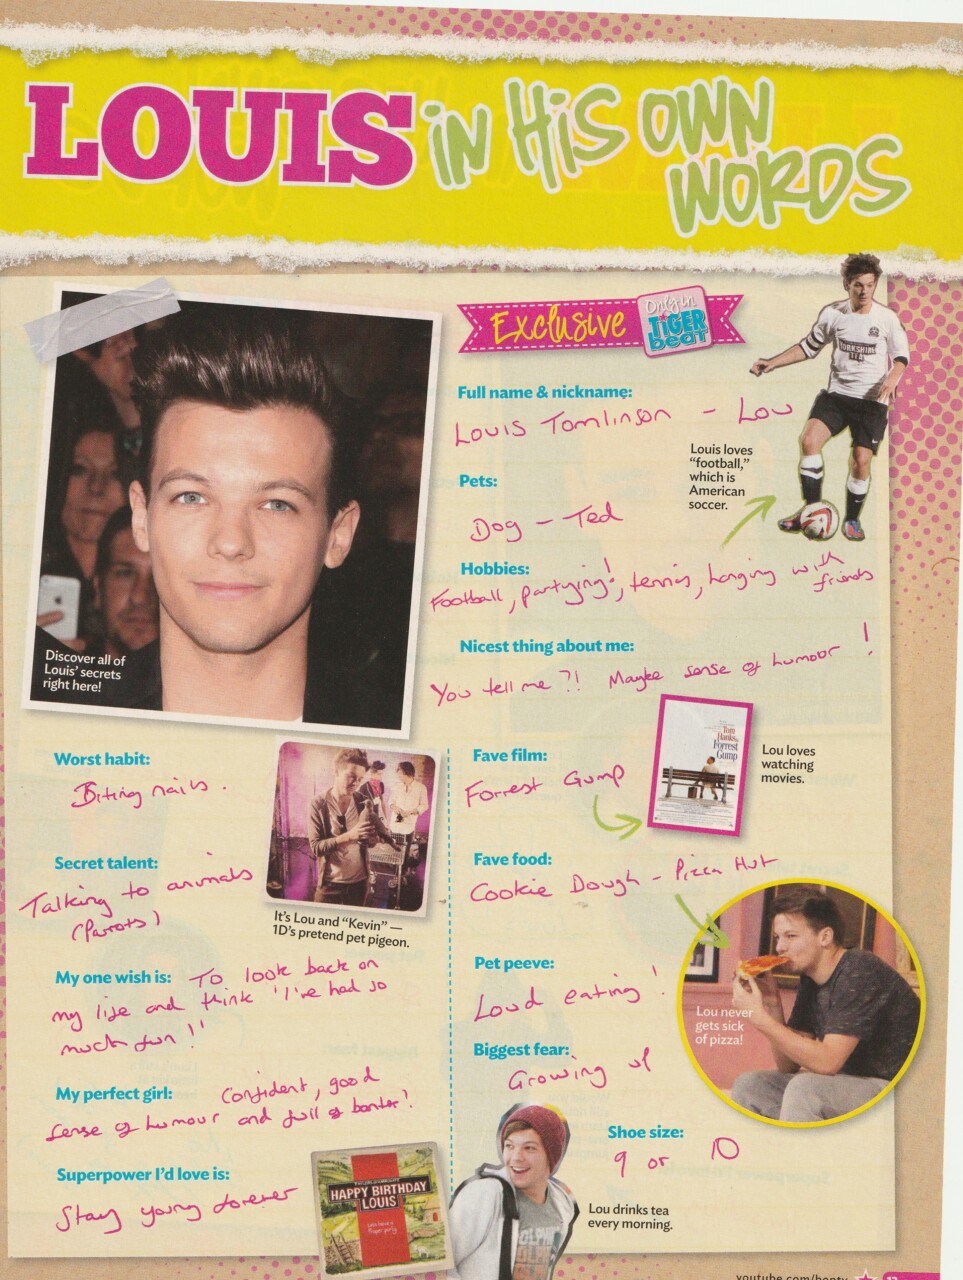 LOUIS in His OWN
WORDS
Exclusive
Only in
TiGER
beat
Full name & nickname:
Louis Tomlinson - Lou
YORKSHIRE
TEA
Louis loves
"football,"
which is
American
soccer.
Pets:
Dog - Ted
Hobbies:
Football, partying!, tennis, hanging with
friends
Nicest thing about me:
You tell me ?! Maybe sense of humour !
Discover all of
Louis' secrets
right here!
Worst habit:
Biting nails.
Secret talent:
Talking to animals
(Parrots)
It's Lou and "Kevin" —
1D's pretend pet pigeon.
My one wish is: To look back on
my life and think 'I've had so
much fun!'
My perfect girl: Confident, good
sense of humour and full of banter!
Superpower I'd love is:
Stay young forever
HAPPY BIRTHDAY
LOUIS
Fave film:
Forrest Gump
Tom
Hanks
Forrest
Gump
Lou loves
watching
movies.
Fave food:
Cookie Dough - Pizza Hut
Pet peeve:
Loud eating!
Lou never
gets sick
of pizza!
Biggest fear:
Growing up
Shoe size:
9 or 10
Lou drinks tea
every morning.